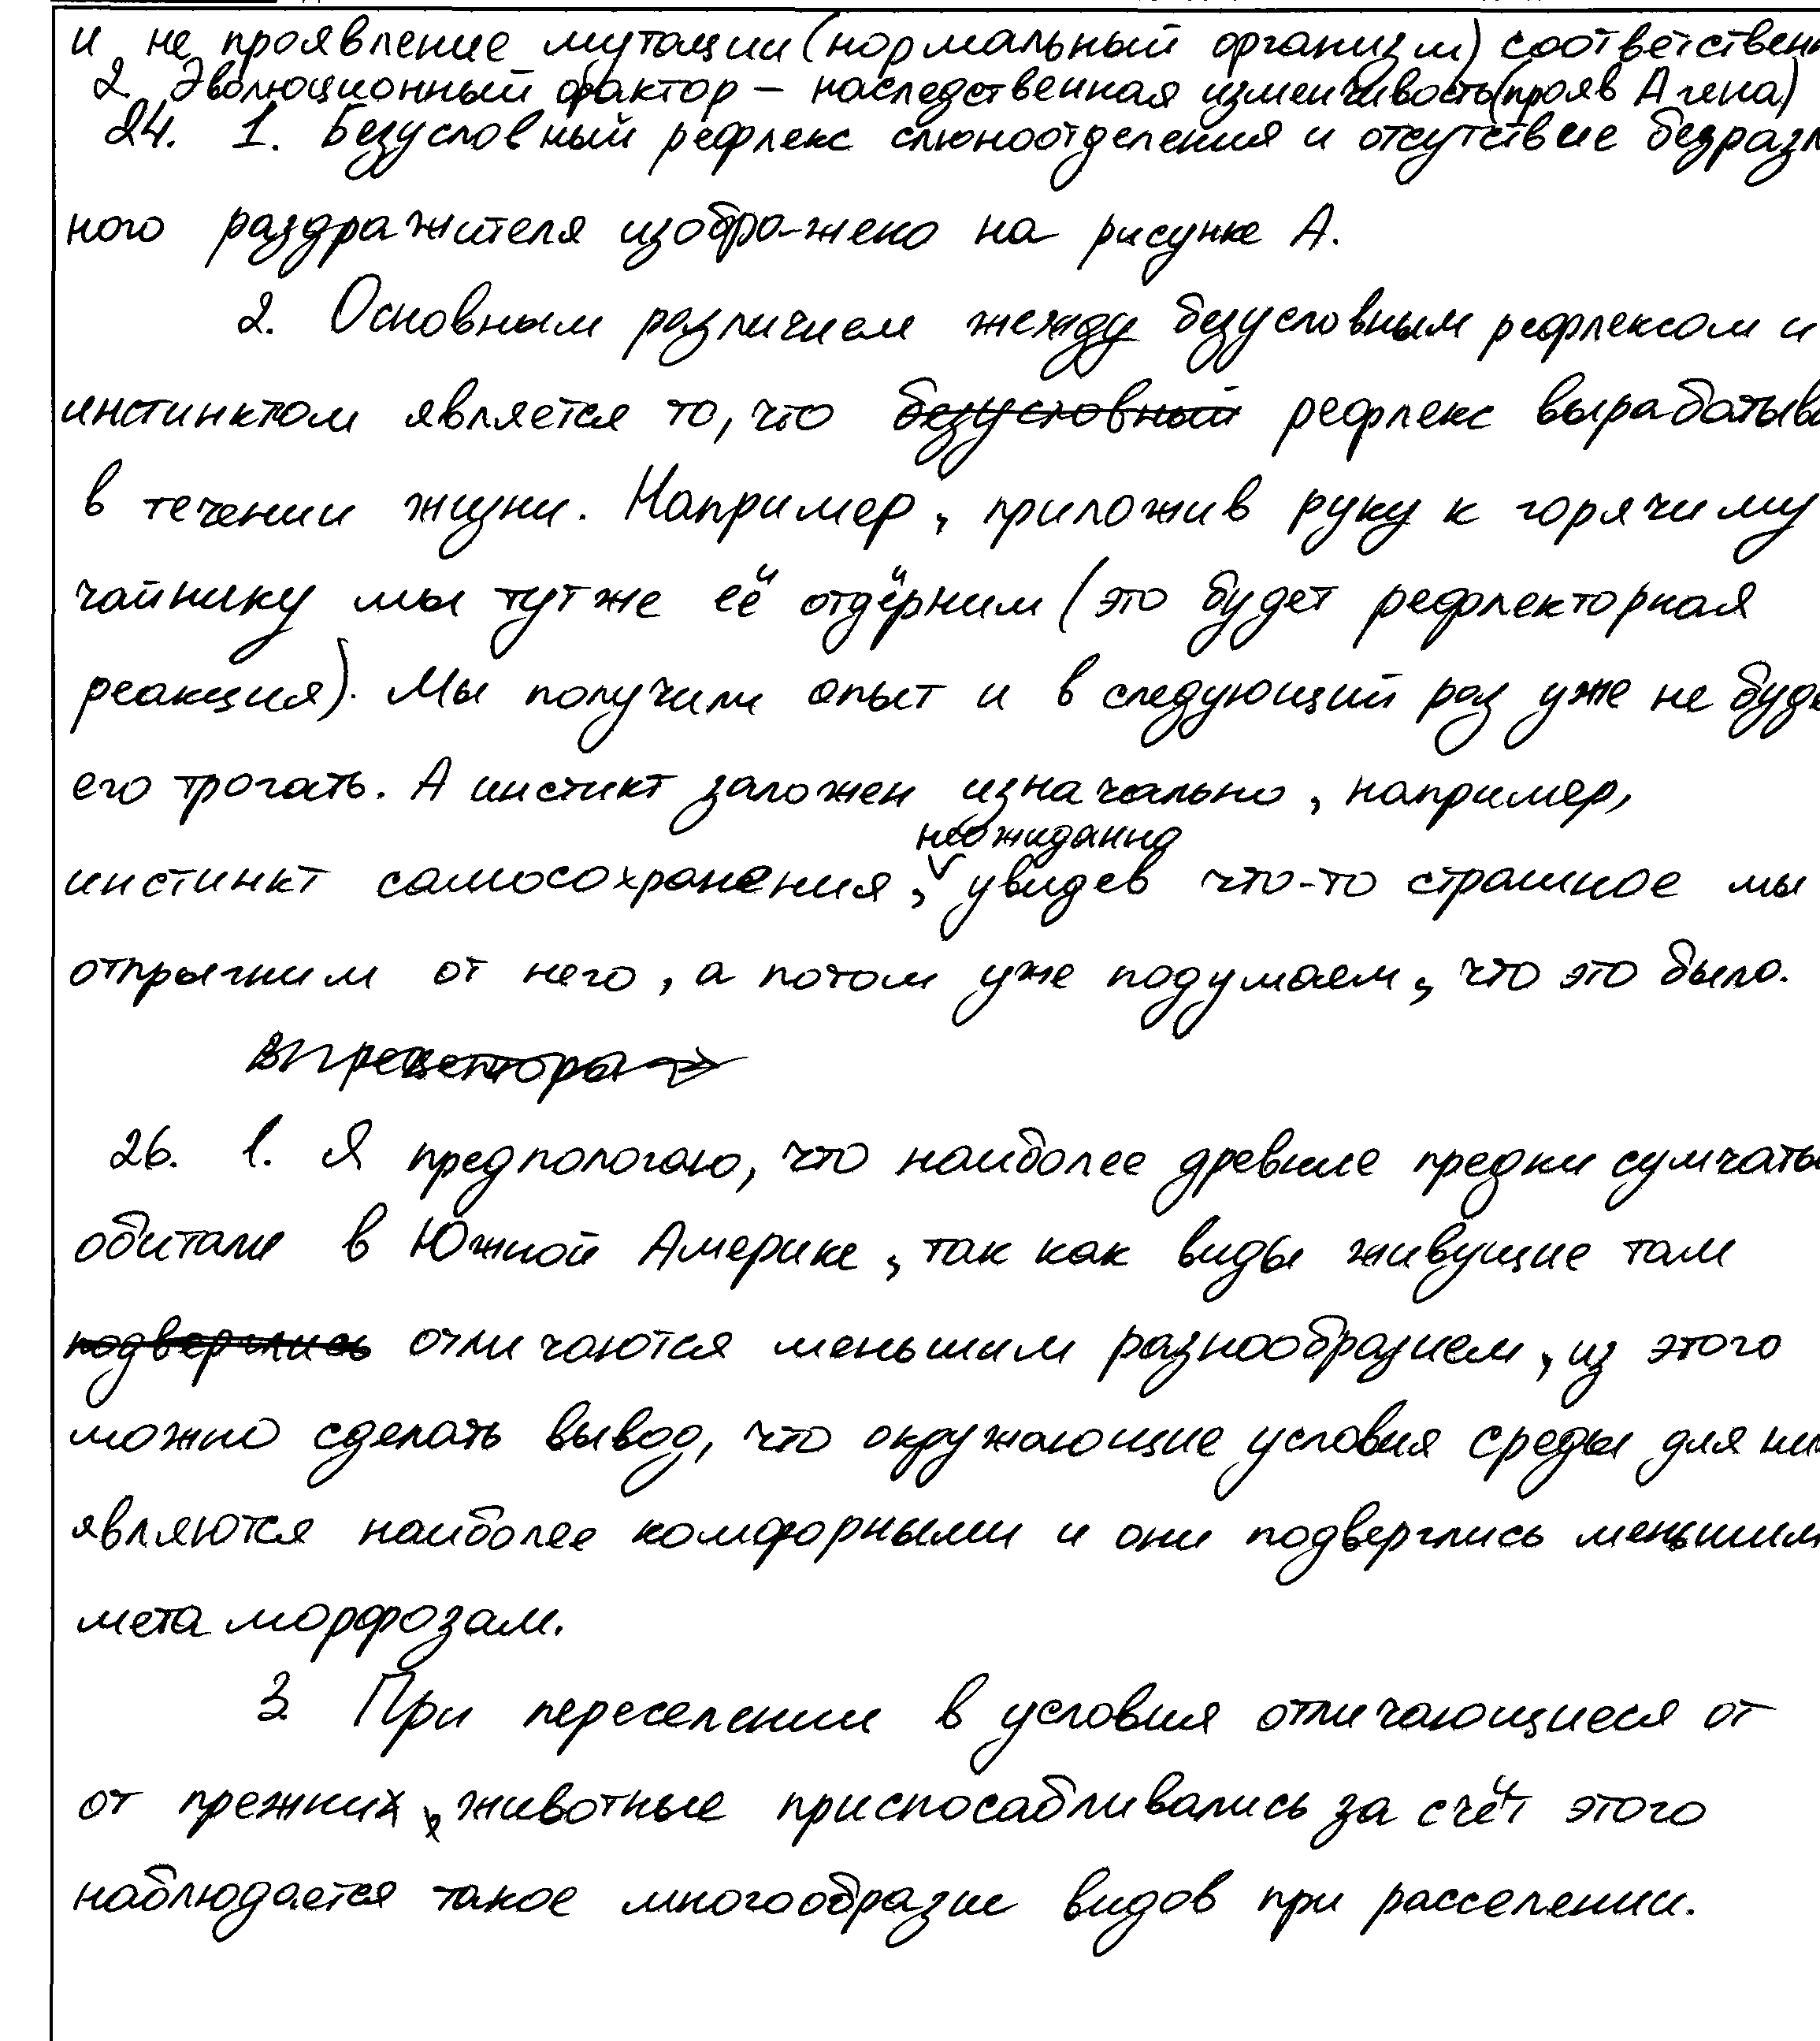 и не проявление мутации (нормальный организм) соответствен
2. Эволюционный фактор – наследственная изменчивость (прояв А гена)
24. 1. Безусловный рефлекс слюноотделения и отсутствие безразл
ного раздражителя изображено на рисунке А.
2. Основным различием между безусловным рефлексом и
инстинктом является то, что безусловный рефлекс вырабатыва
в течении жизни. Например, приложив руку к горячиму
чайнику мы тут же её отдёрним (это будет рефлекторная
реакция). Мы получили опыт и в следующий раз уже не буде
его трогать. А инстикт заложен изначально, например,
неожиданно
инстинкт самосохранения, увидев что-то страшное мы
отпрыгним от него, а потом уже подумаем, что это было.
рецепторы →
26. 1. Я предпологаю, что наиболее древние предки сумчаты
обитали в Южной Америке, так как виды живущие там
подверглись отличаются меньшим разнообразием, из этого
можно сделать вывод, что окружающие условия среды для ни
являются наиболее комфорными и они подверглись меньшим
метаморфозам.
3. При переселении в условия отличающиеся от
от прежних, животные приспосабливались за счёт этого
наблюдается такое многообразие видов при расселении.